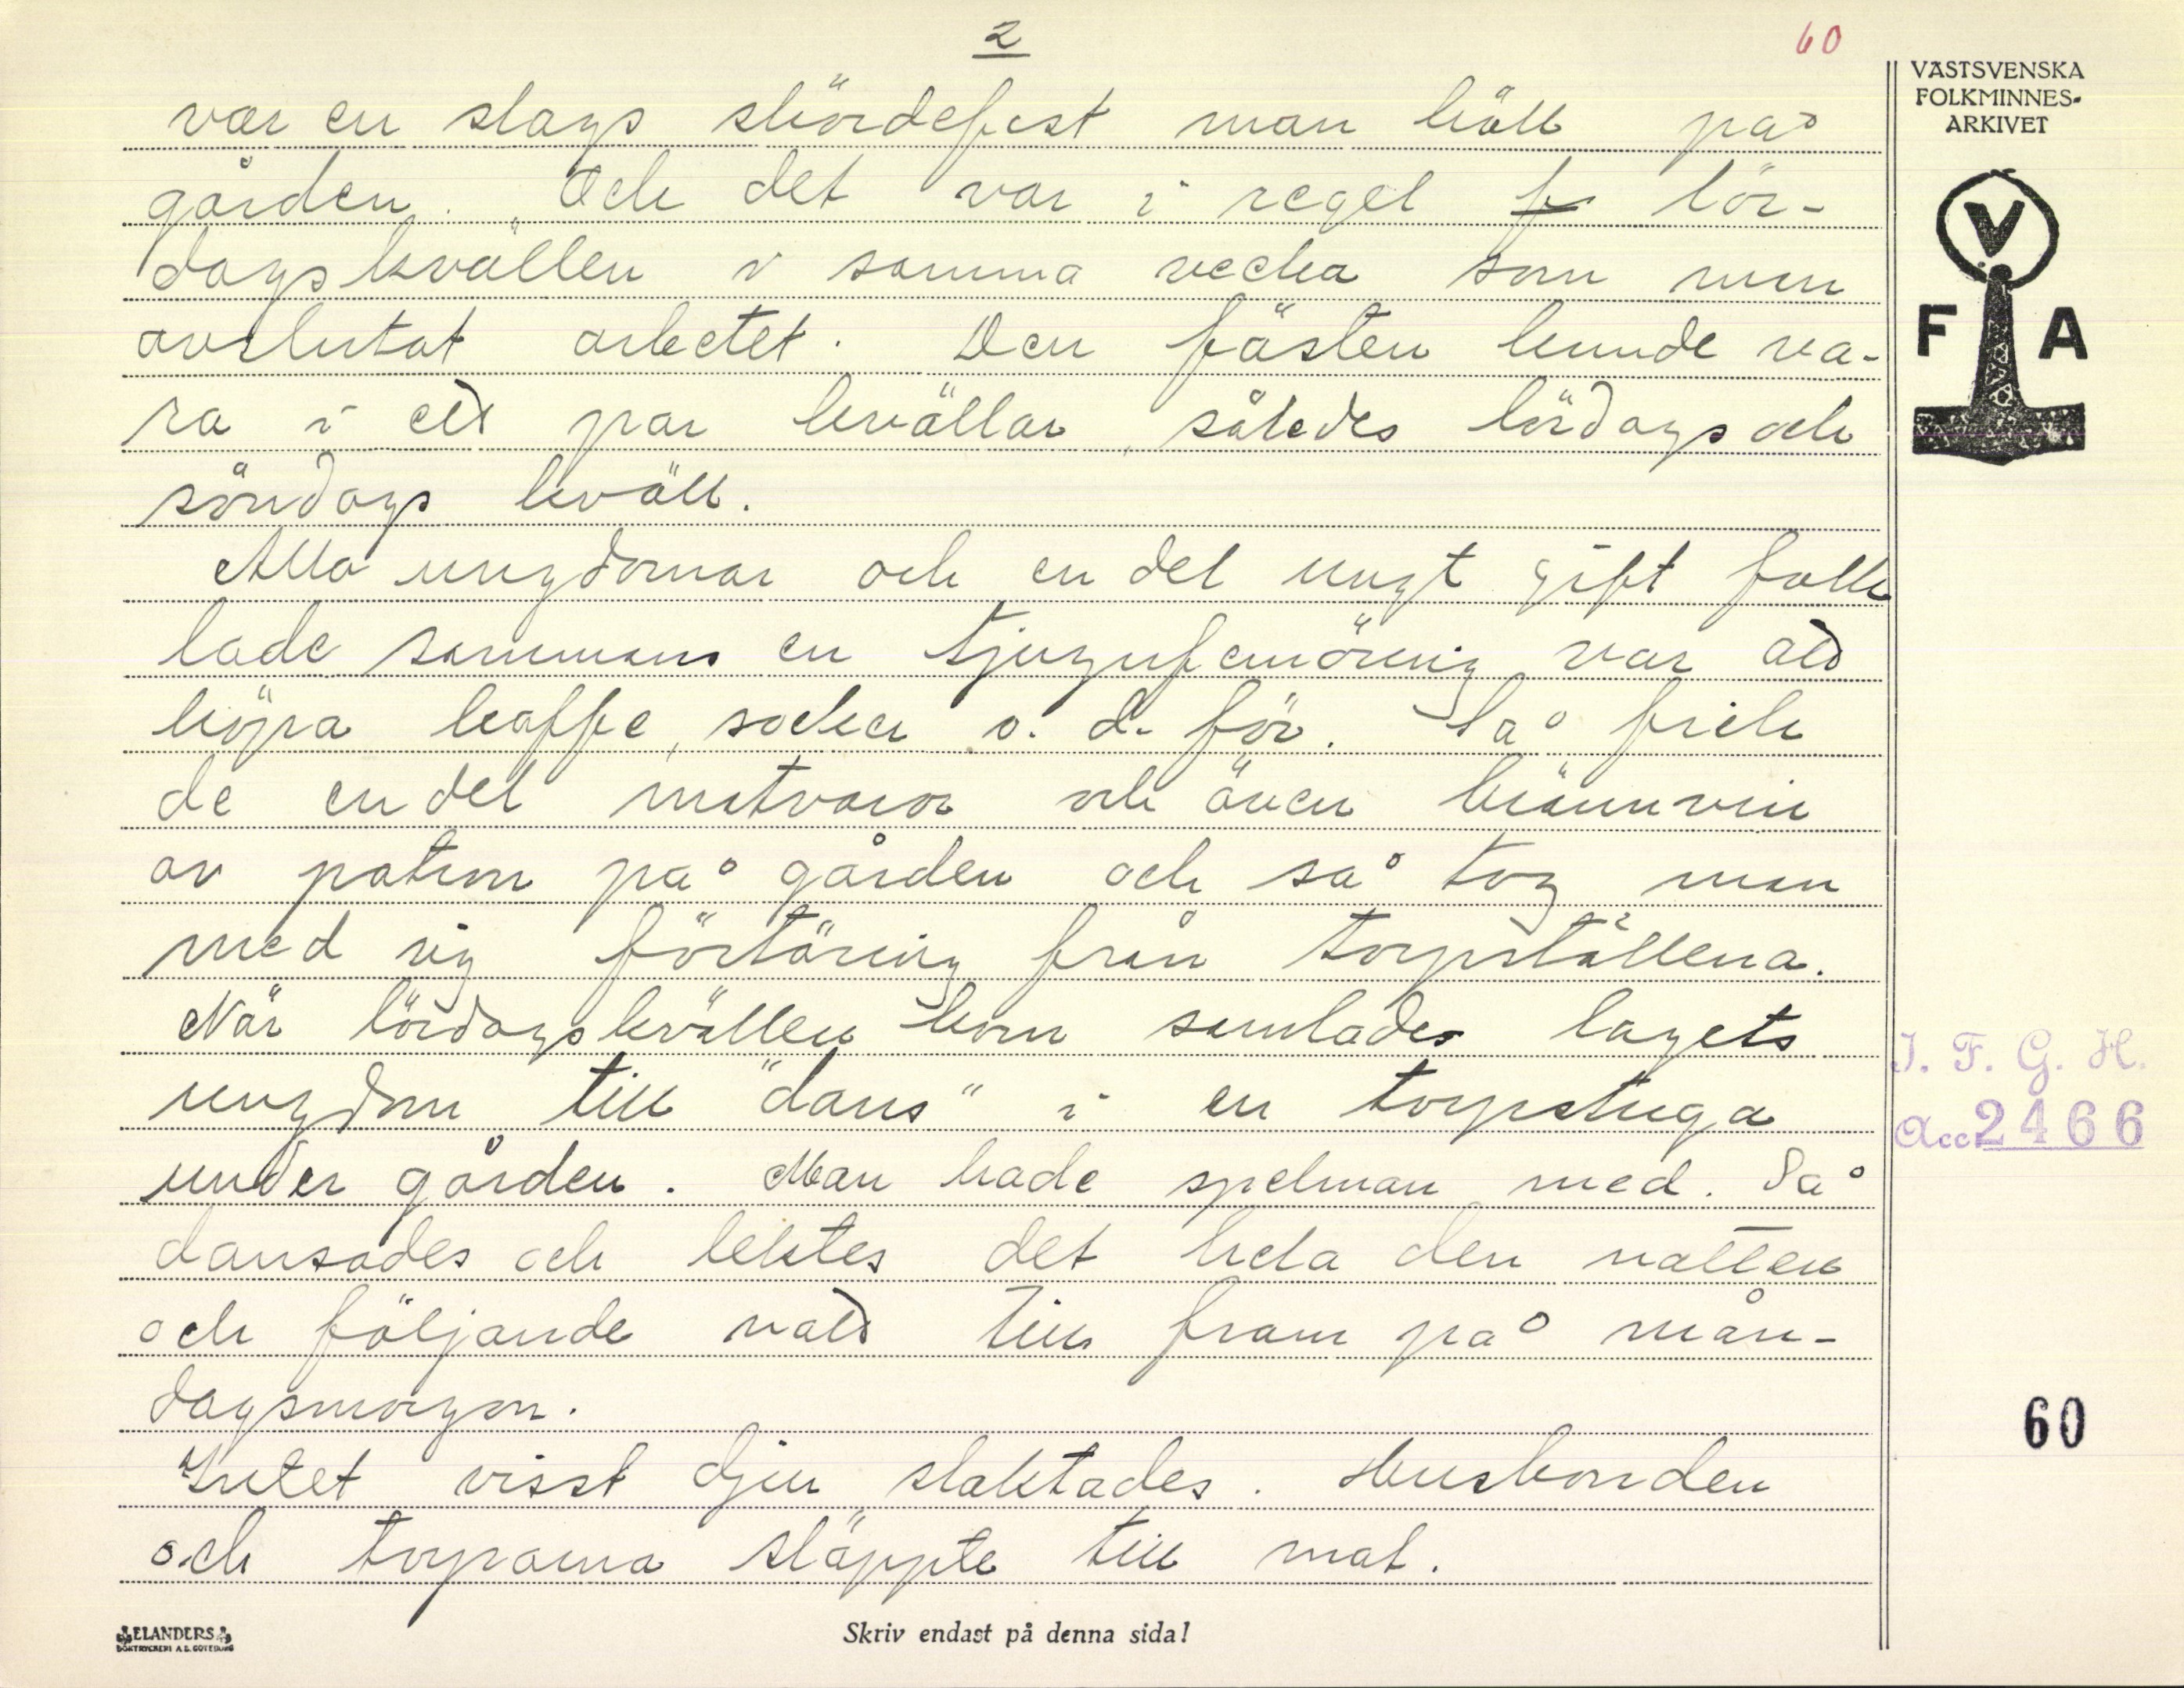 2
60
VÄSTSVENSKA
FOLKMINNES-
ARKIVET
V
F A
var en slags skördefest man höll på
gården. Och det var i regel f lör-
dagskvällen i samma vecka som man
avslutat arbetet. Den fästen kunde va-
ra i ett par kvällar, således lördags och
söndags kväll.
Alla ungdomar och en del ungt gift folk
lade sammans en tjugufemöring var att
köpa kaffe, socker o. d. för. Så fick
de en del matvaror och även brännvin
av patron på gården och så tog man
med sig förtäring från torpställena.
När lördagskvällen kom samlades lagets
ungdom till "dans" i en torpstuga
under gården. Man hade spelman med. Så
dansades och lektes det hela den natten
och följande natt till fram på mån-
dagsmorgon.
Intet visst djur slaktades. Husbonden
och torparna släppte till mat.
I. F. G. H.
Acc 2466
60
ELANDERS
BOKTRYCKERI A.B. GÖTEBORG
Skriv endast på denna sida!